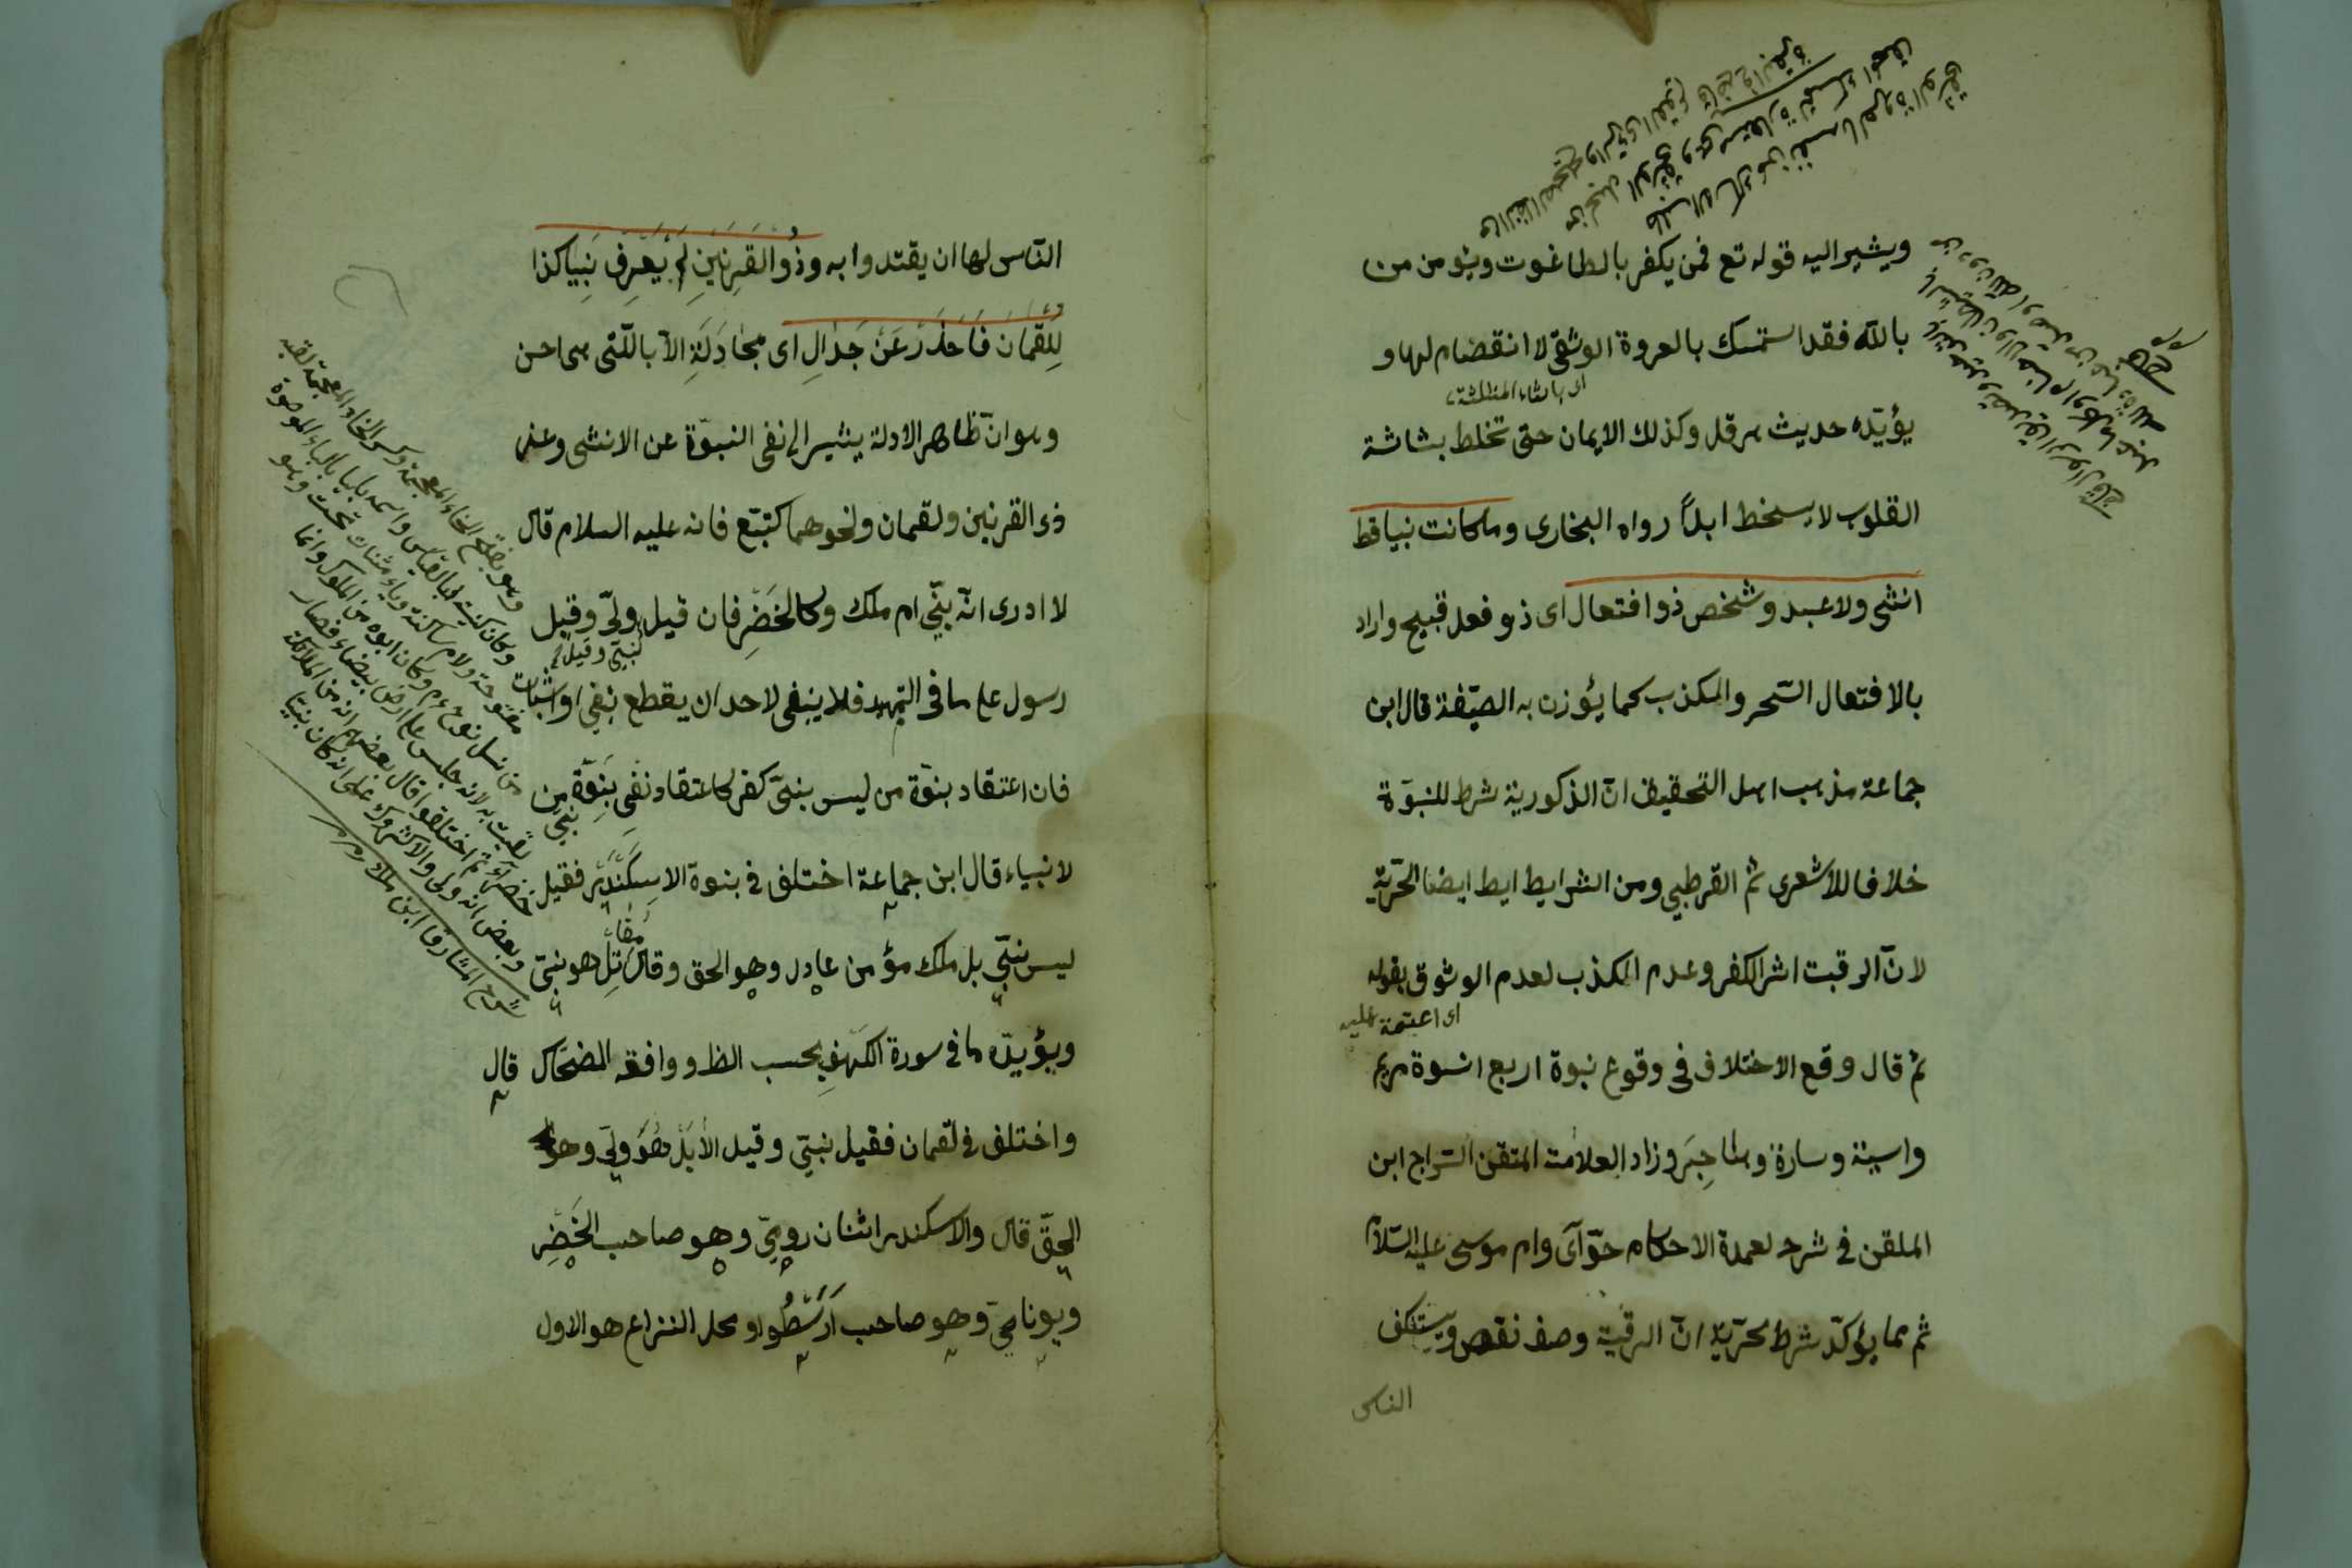 ويشير اليه قوله تع فمن يكفر بالطاغوت ويؤمن من
بالله فقد استمسك بالعروة الوثقى لا انقضام لها و
اى بالثاء المثلثة
يؤيّده حديث هرقل وكذلك الايمان حتى تخلط بشاشة
القلوب لا يسخط ابداً رواه البخارى وما كانت نبيا قط
انثى ولا عبد وشخص ذو افتعال اى ذو فعل قبيح واراد
بالافتعال السّحر والكذب كما يؤزن به الصيّغة قال ابن
جماعة مذهب اهل التحقيق انّ الذكورية شرط للنبوّة
خلافا للاشعرى ثم القرطبي ومن الشرايط ايط ايضا الحرّية
لانّ الرقبت اثر الكفر وعدم الكذب لعدم الوثوق بقوله
اى اعتمة عليه
ثم قال وقع الاختلاف فى وقوع نبوة اربع انسوة مريم
واسية وسارة وهاجِرَ وزاد العلامت المتقن السّراج ابن
الملقن فى شرح لعمدة الاحكام حوّآى وام موسى عليه السّلام
ثم مما يؤكدّ شرط الحرّية انّ الرقية وصف نقص ويستنكف
الناس
الناس لها ان يقتدوا به وذُو القَرنَينِ لَم يُعرَف نَبِيا كذا
لُقمان فَاحذَر عَن جَدَالِ اى مجادَلَةِ الاّ بالّتى هى احسن
وهو انّ ظاهر الادلة يشير الى نفى النبوّة عن الانثى وعن
ذى القرنين ولقمان ونحوهما كتبّع فانه عليه السلام قال
لا ادرى انّه نبّي ام ملك وكالخَضِر فان قيل ولىّ وقيل
نبيّ وقيل
رسول على ما فى التمهيد فلا ينبغى لاحد ان يقطع بنفى او اثبات
فان اعتقاد بنوّة من ليس بنبىّ كفر كاعتقاد نفى بَنِوّة من
نبيّ
لانبياء قال ابن جماعة اختلف فى بنوة الاسِكَندَر فقيل
ليس نبيّ بل ملك مؤمن عادل وهو الحق وقال مُقاتِل هو نبيّ
ويؤيدّه ما فى سورة الكهف بحسب الظ ووافقه الضحّاك قال
واختلف فى لقمان فقيل نبيّ وقيل لا بَل هُوَ ولىّ وهو
الحقّ قال والاسكندر اثنان روميّ وهو صاحب الخَضِر
ويونانيّ وهو صاحب اَرَسْطُو او محل النزاع هو الاول
وهو بفتح الخاء المعجمة وكسر الضاد المعجمة لقبه
وكان كنيته ابا العبّاس واسمه بليا بالباء الموحدة
مفتوحة ولام ساكنة وياء مثنات تحت وهو
من نسل نوح ءم وكان ابوه من الملوك وانما
لقبت به لانه جلس على ارض بيضاء فصار
خضراء ثم اختلفوا قال بعضهم انه من الملائكة
وبعض انه ولى والاكثرون على انه كان نبيّا
شرح المشارق ابن ملك